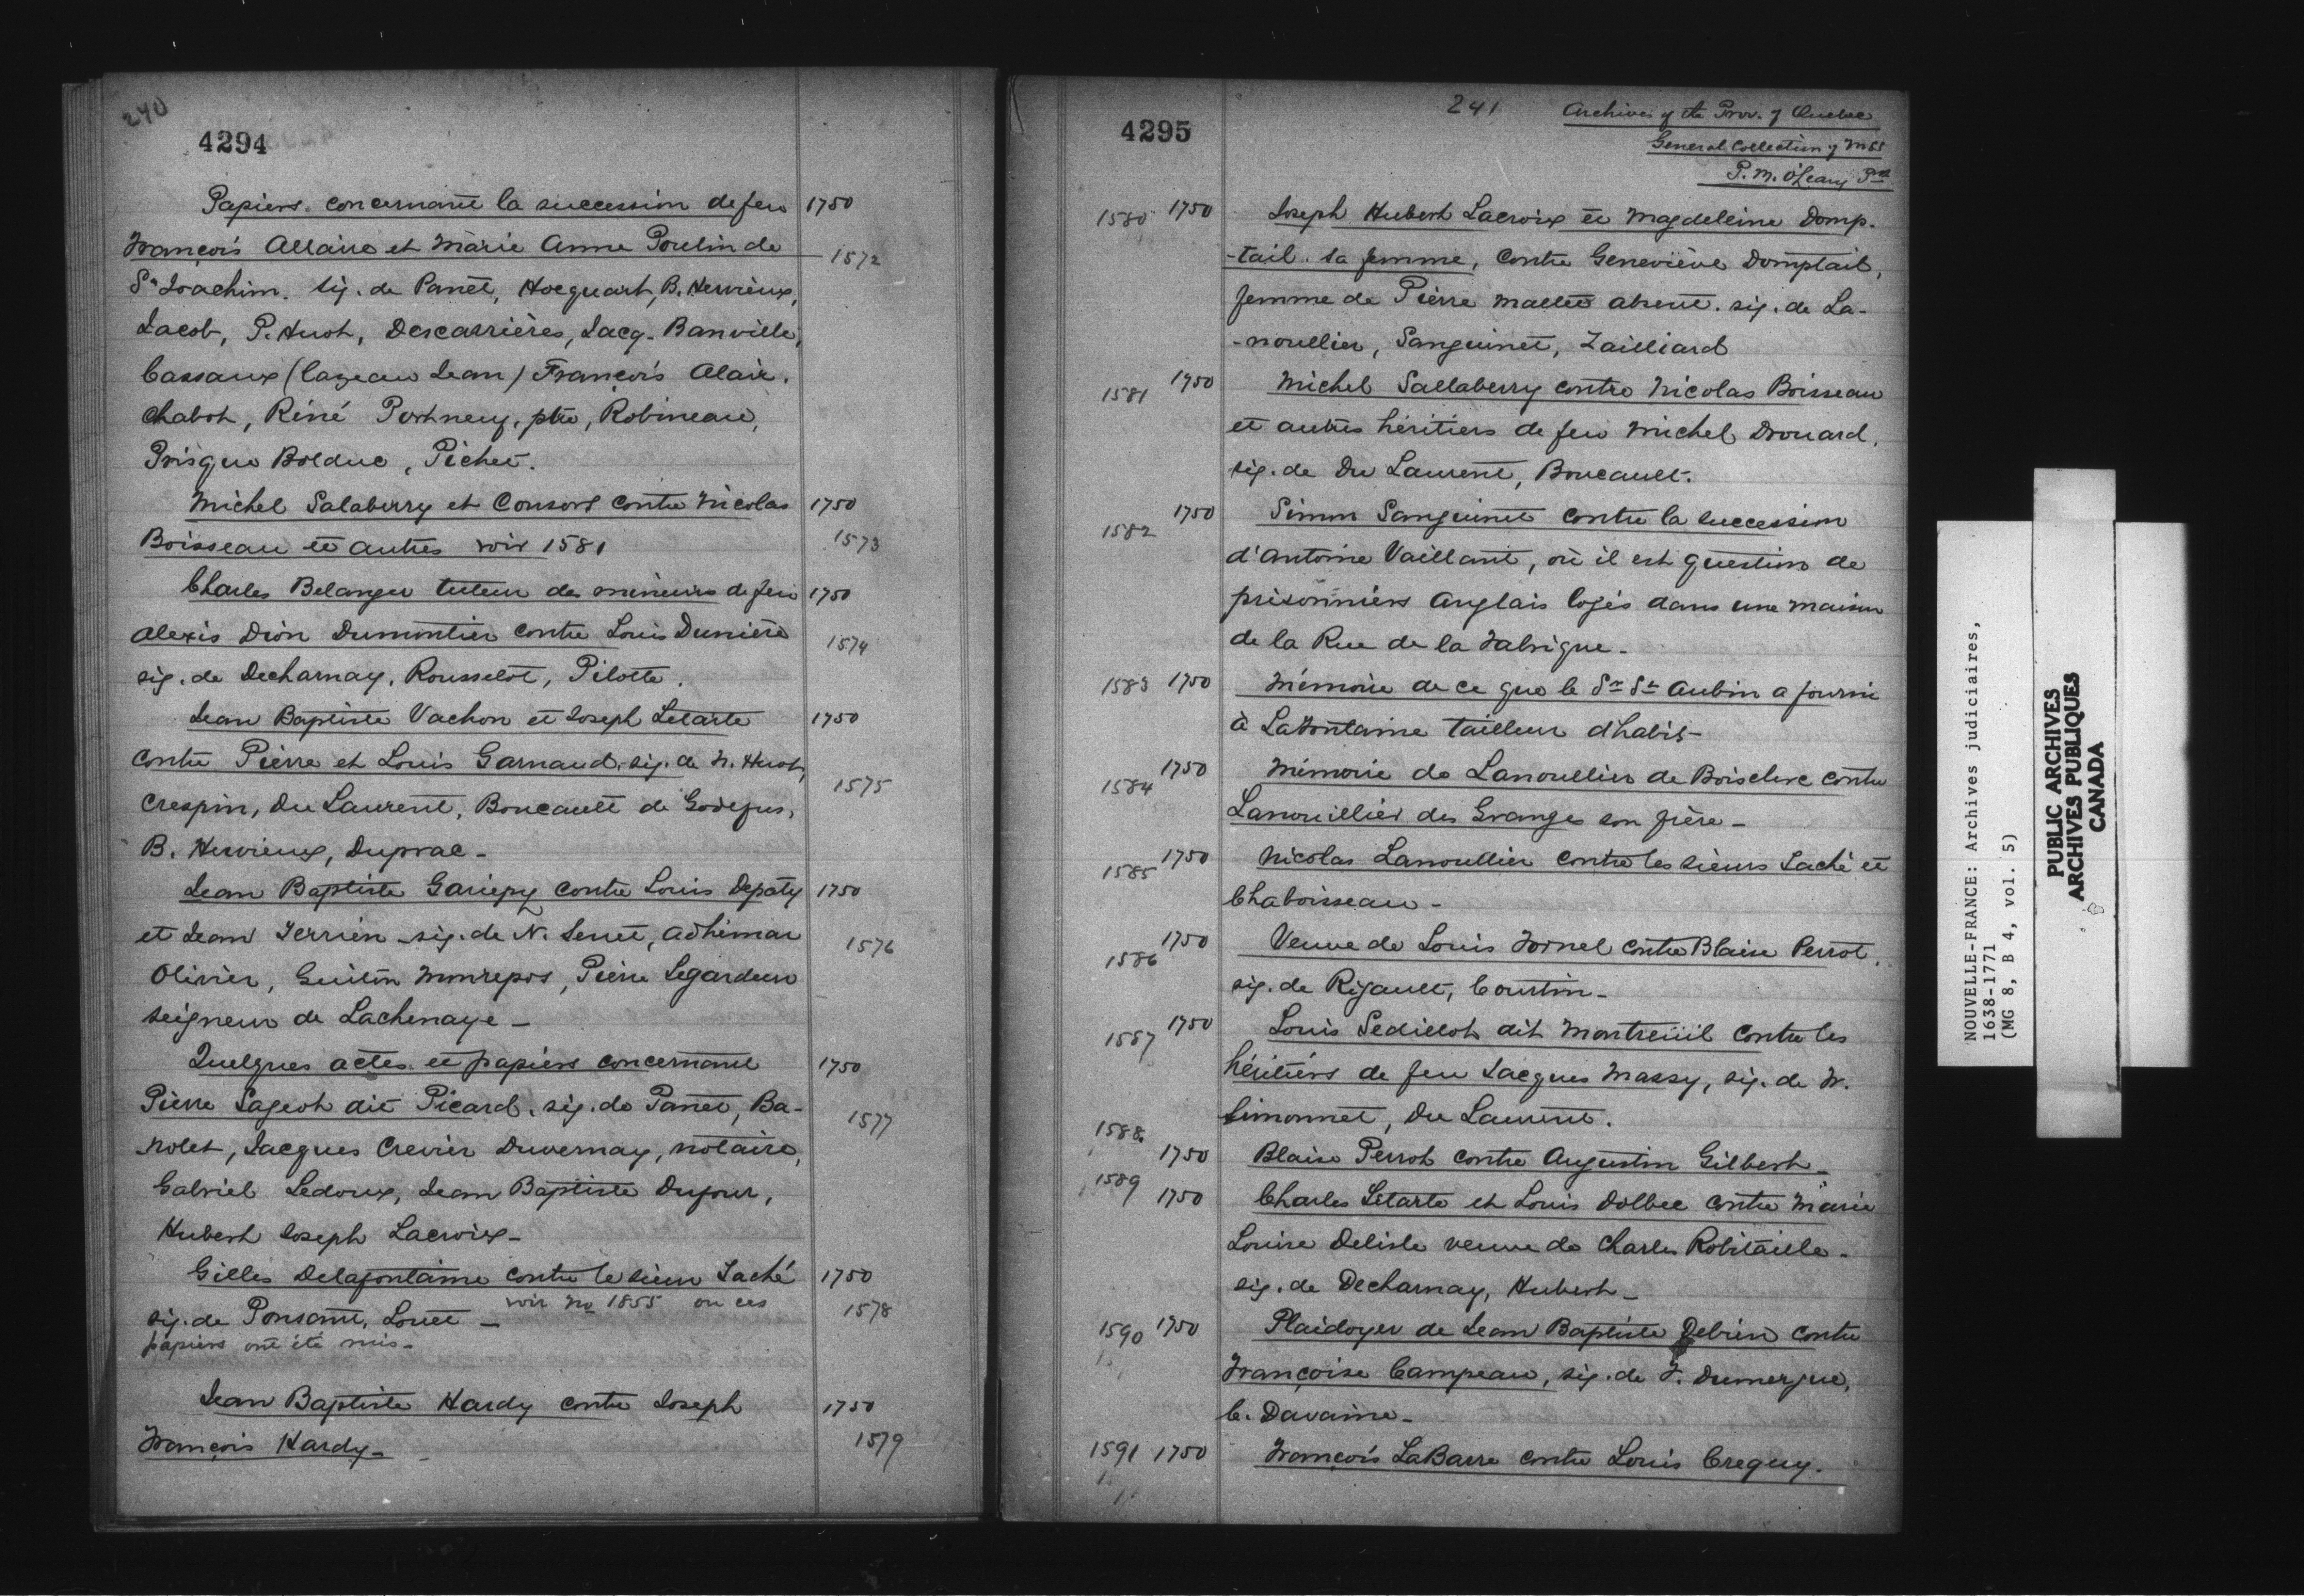 240
4294
Papiers concernant la succession de feu 1750
François Allaire et Marie Anne Poulin de 1572
St Joachim. sig. de Panet, Hocquart, B. Hervieux,
Jacob, P. Huot, Descarrières, Jacq. Banville,
Cassaux (Cazeau Jean) François Alair.
Chabot, Réné Portneuf, ptre, Robineau,
Prisque Bolduc, Pichet.
Michel Salaberry et Consors contre Nicolas 1750
Boisseau et autres voir 1581 1573
Charles Belanger tuteur des mineurs de feu 1750
Alexis Dion Dumontier contre Louis Dunière 1574
sig. de Decharnay, Rousselot, Pilotte.
Jean Baptiste Vachon et Joseph Letarte 1750
contre Pierre et Louis Garnaud, sig. de N. Huot,
Crespin, Du Laurent, Boucault de Godefus, 1575
B. Hervieux, Duprac -
Jean Baptiste Gariepy contre Louis Depaty 1750
et Jean Terrien sig. de N. Senet, Adhémar 1576
Olivier, Guiton Monrepos, Pierre Legardeur
seigneur de Lachenaye -
Quelques actes et papiers concernant 1750
Pierre Sageot dit Picard. sig. de Panet, Ba- 1577
rolet, Jacques Crevier Duvernay, notaire,
Gabriel Ledoux, Jean Baptiste Dufour,
Hubert Joseph Lacroix -
Gilles Delafontaine contre le sieur Taché 1750
sig. de Ponsant, Louet - voir No 1855 ou ces 1578
papiers ont été mis -
Jean Baptiste Hardy contre Joseph 1750
François Hardy - 1579
4295
241
Archives of the Prov. of Quebec
General Collection of MSS
P. M. O'Leary
1580 1750 Joseph Hubert Lacroix et Magdeleine Domp-
-tail sa femme, contre Geneviève Domptail,
femme de Pierre Mallet absent. sig. de La-
-noullier, Sanguinet, Zailliard
1581 1750 Michel Sallaberry contre Nicolas Boisseau
et autres héritiers de feu Michel Drouard,
sig. de Du Laurent, Boucault.
1582 1750 Simon Sanguinet contre la succession
d'Antoine Vaillant, où il est question de
prisonniers Anglais logés dans une maison
de la Rue de la Fabrique -
1583 1750 Mémoire de ce que le Sr St Aubin a fourni
à LaFontaine tailleur d'habis -
1584 1750 Mémoire de Lanoullier de Boisclerc contre
Lanouillier des Granges son frère -
1585 1750 Nicolas Lanoullier contre les sieurs Taché et
Chaboisseau -
1586 1750 Veuve de Louis Fornel contre Blaise Perrot.
sig. de Rigault, Courtin -
1587 1750 Louis Sedillot dit Montreüil contre les
héritiers de feu Jacques Massy, sig. de F.
Simonnet, Du Laurent.
1588 1750 Blaise Perrot contre Augustin Gilbert -
1589 1750 Charles Letarte et Louis Dolbec contre Marie
Louise Delisle veuve de Charles Robitaille -
sig. de Decharnay, Hubert -
1590 1750 Plaidoyer de Jean Baptiste Debien contre
Françoise Campeau, sig. de F. Dumergue,
C. Davaine -
1591 1750 François LaBarre contre Louis Crequy.
NOUVELLE-FRANCE: Archives judiciaires,
1638-1771
(MG 8, B 4, vol. 5)
PUBLIC ARCHIVES
ARCHIVES PUBLIQUES
CANADA